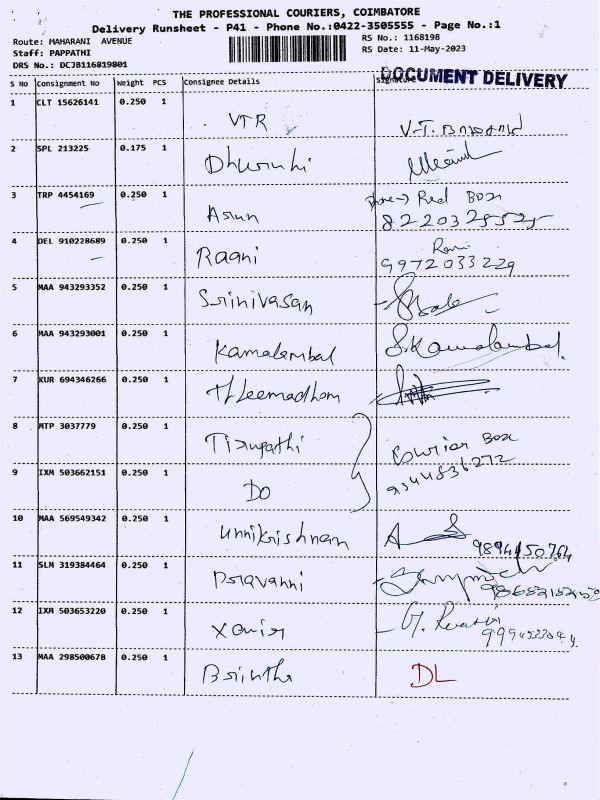 THE PROFESSIONAL COURIERS, COIMBATORE
Delivery Runsheet - P41 - Phone No.:0422-3505555 - Page No.:1
Route: MAHARANI AVENUE RS No.: 1168198
Staff: PAPPATHI RS Date: 11-May-2023
DRS No.: DCJB116819801
DOCUMENT DELIVERY
S No Consignment No Weight PCS Consignee Details Signature
1 CLT 15626141 0.250 1 VTR
2 SPL 213225 0.175 1 Dhuruhi
3 TRP 4454169 0.250 1 Arun Red Box
8220325525
4 DEL 910228689 0.250 1 Raani Rani
9972033229
5 MAA 943293352 0.250 1 Srinivasan
6 MAA 943293001 0.250 1 Kamalambal S.Kamalambal.
7 KUR 694346266 0.250 1 Thleemadhom
8 MTP 3037779 0.250 1 Tirupathi Courier Box
9344836272
9 IXM 503662151 0.250 1 DO
10 MAA 569549342 0.250 1 Unnikrishnan 9894150764
11 SLM 319384464 0.250 1 Pravanni
12 IXM 503653220 0.250 1 Xavier
13 MAA 298500678 0.250 1 Brintha DL